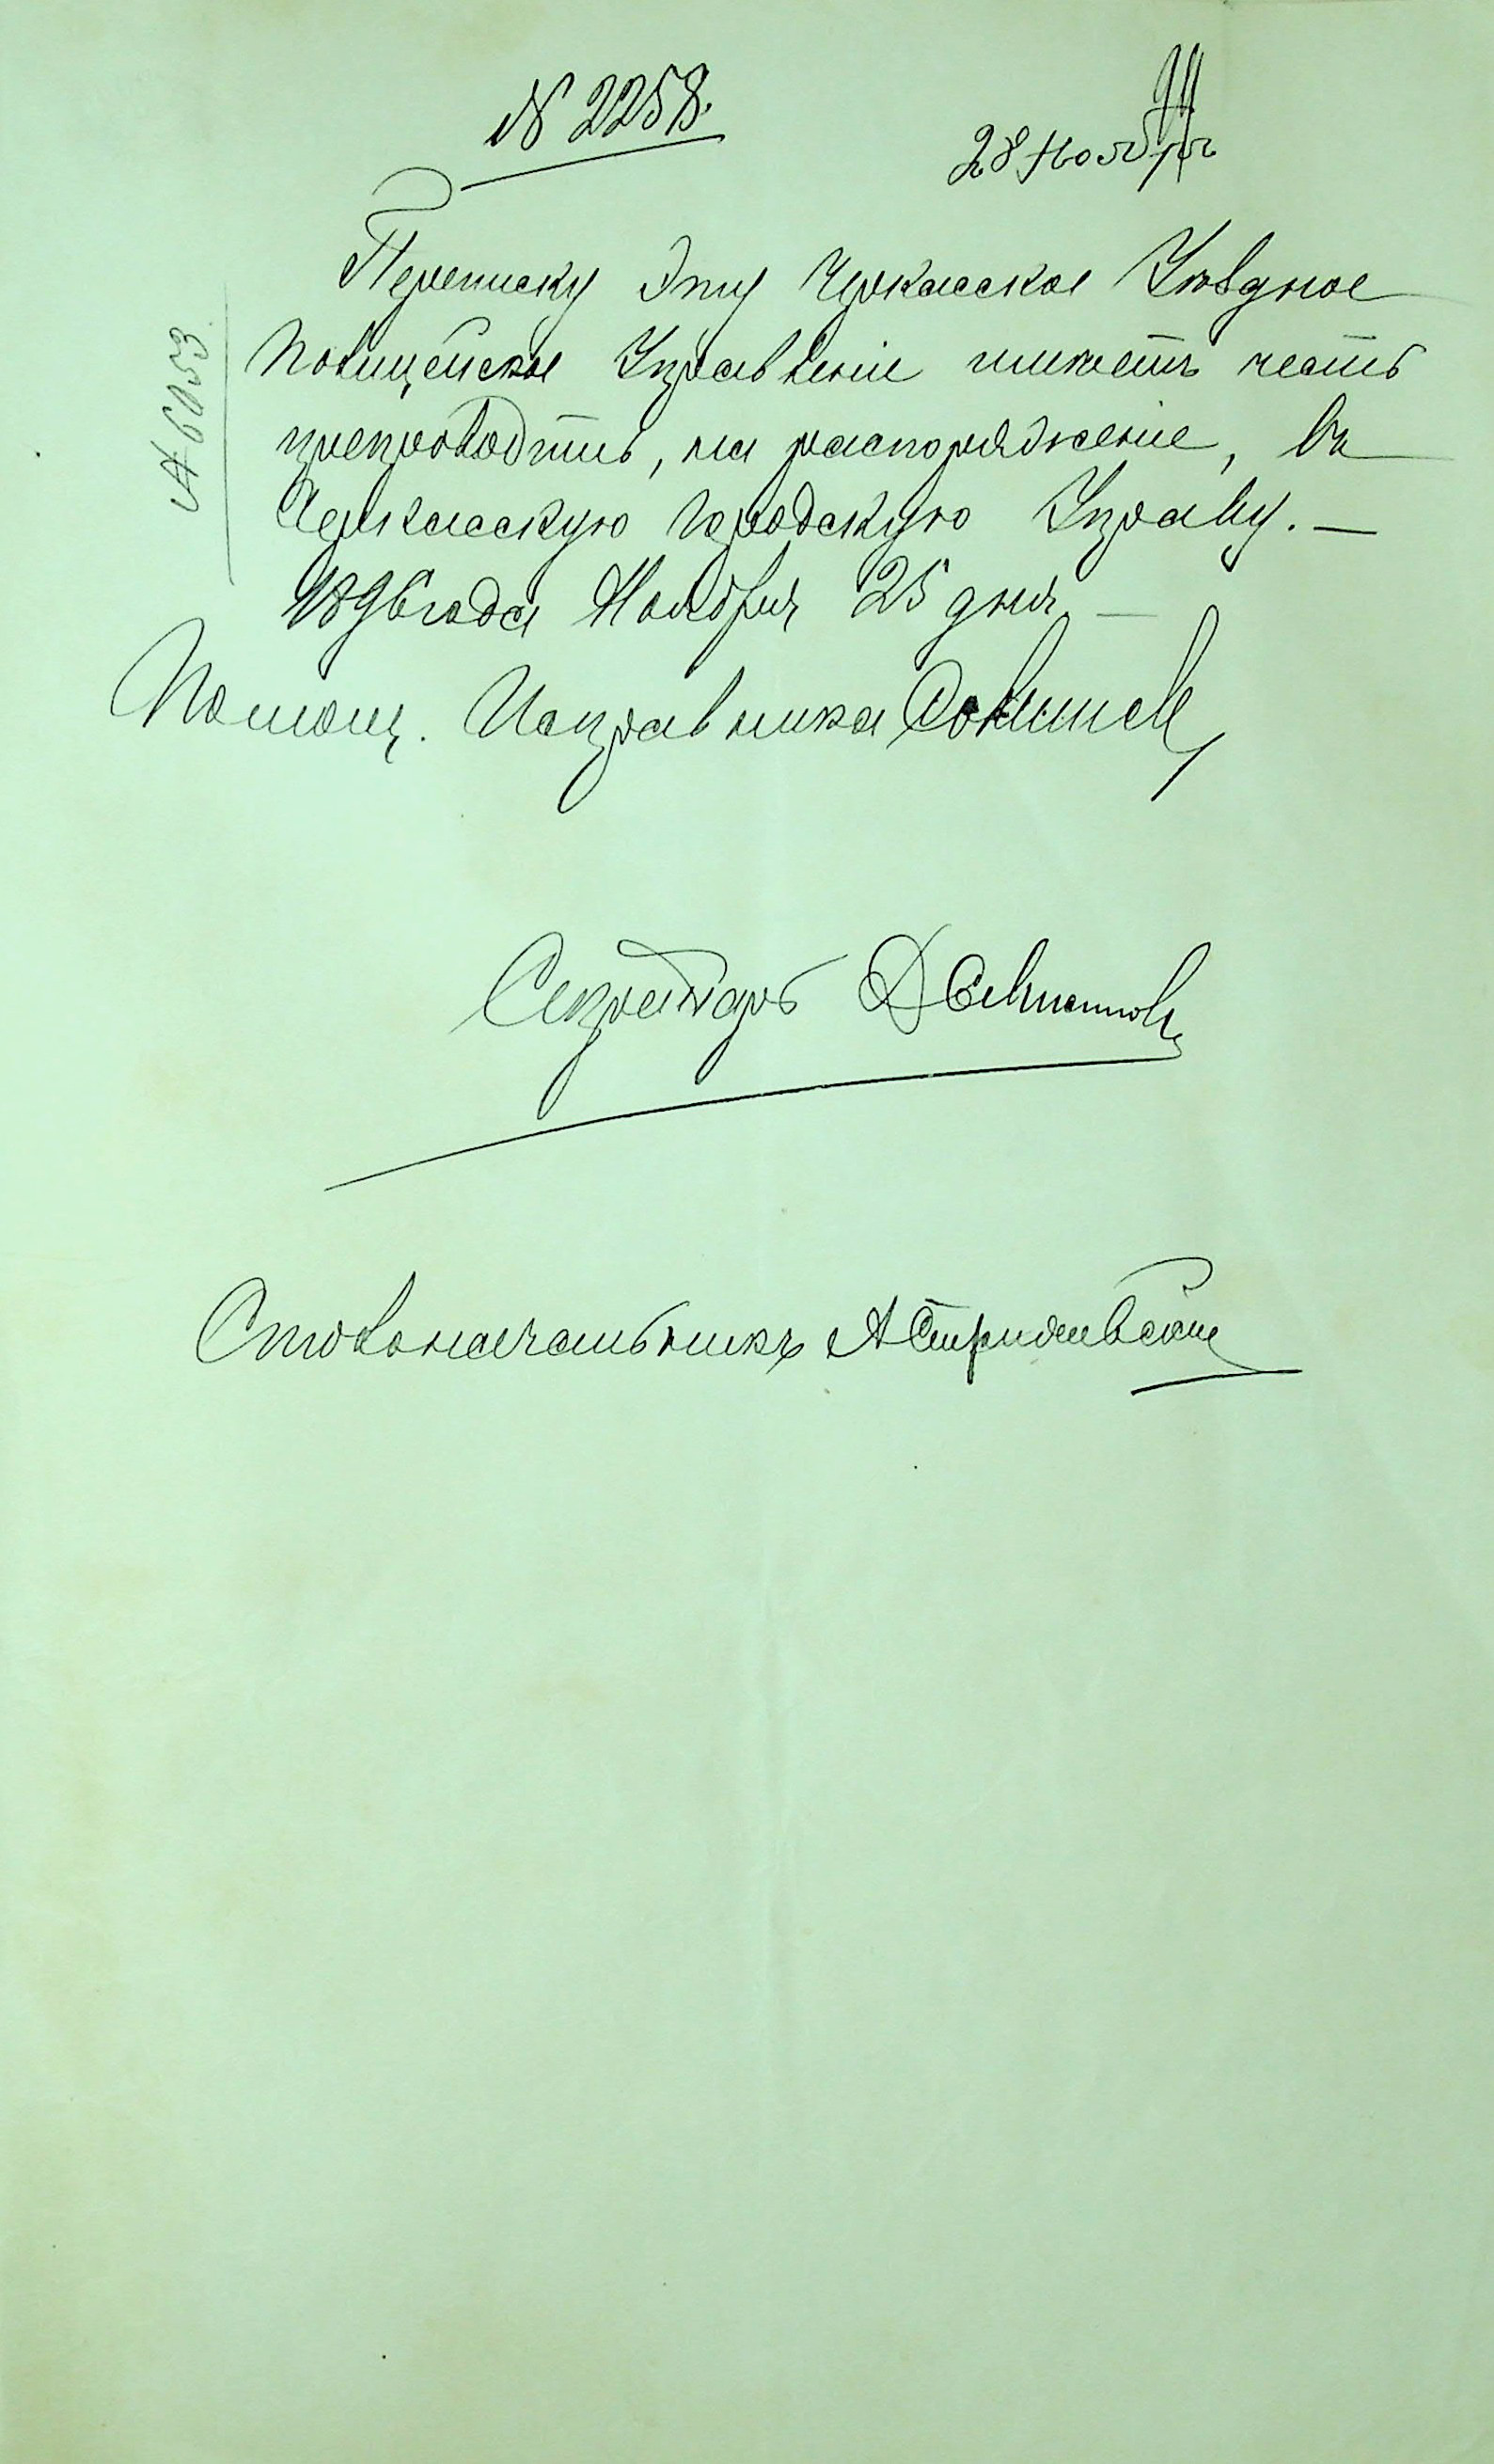 № 2258.
28 Ноября
Переписку эту Черкасское Уѣздное
Полицейское Управленіе имѣетъ честь
препроводить, на распоряженіе, въ
Черкасскую Городскую Управу. —
1896 года Ноября 25 дня. —
№ 6053.
Помощ. Исправника
Секретарь
Столоначальникъ А Стрижевскій